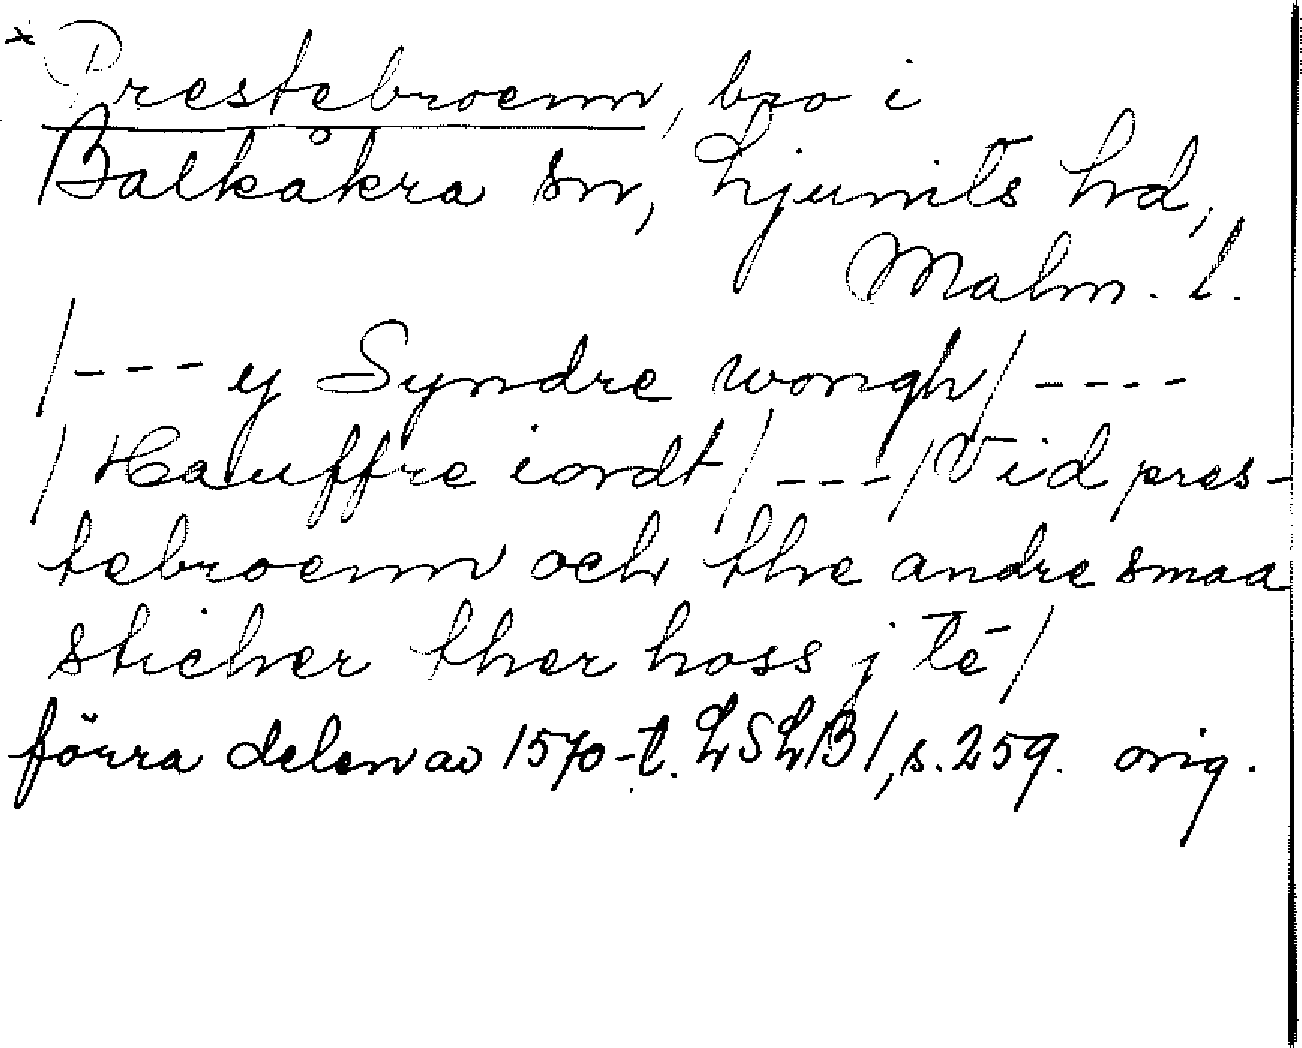 × Prestebroenn, bro i
Balkåkra sn, Ljunits hd,
Malm. l.
/--- y Syndre wongh/ ----
/ Hauffre iordt / ---/ Vid pres-
tebroenn och the andre smaa
sticher ther hoss j tē /
förra delen av 1570-t. LSLB 1, s. 259. orig.